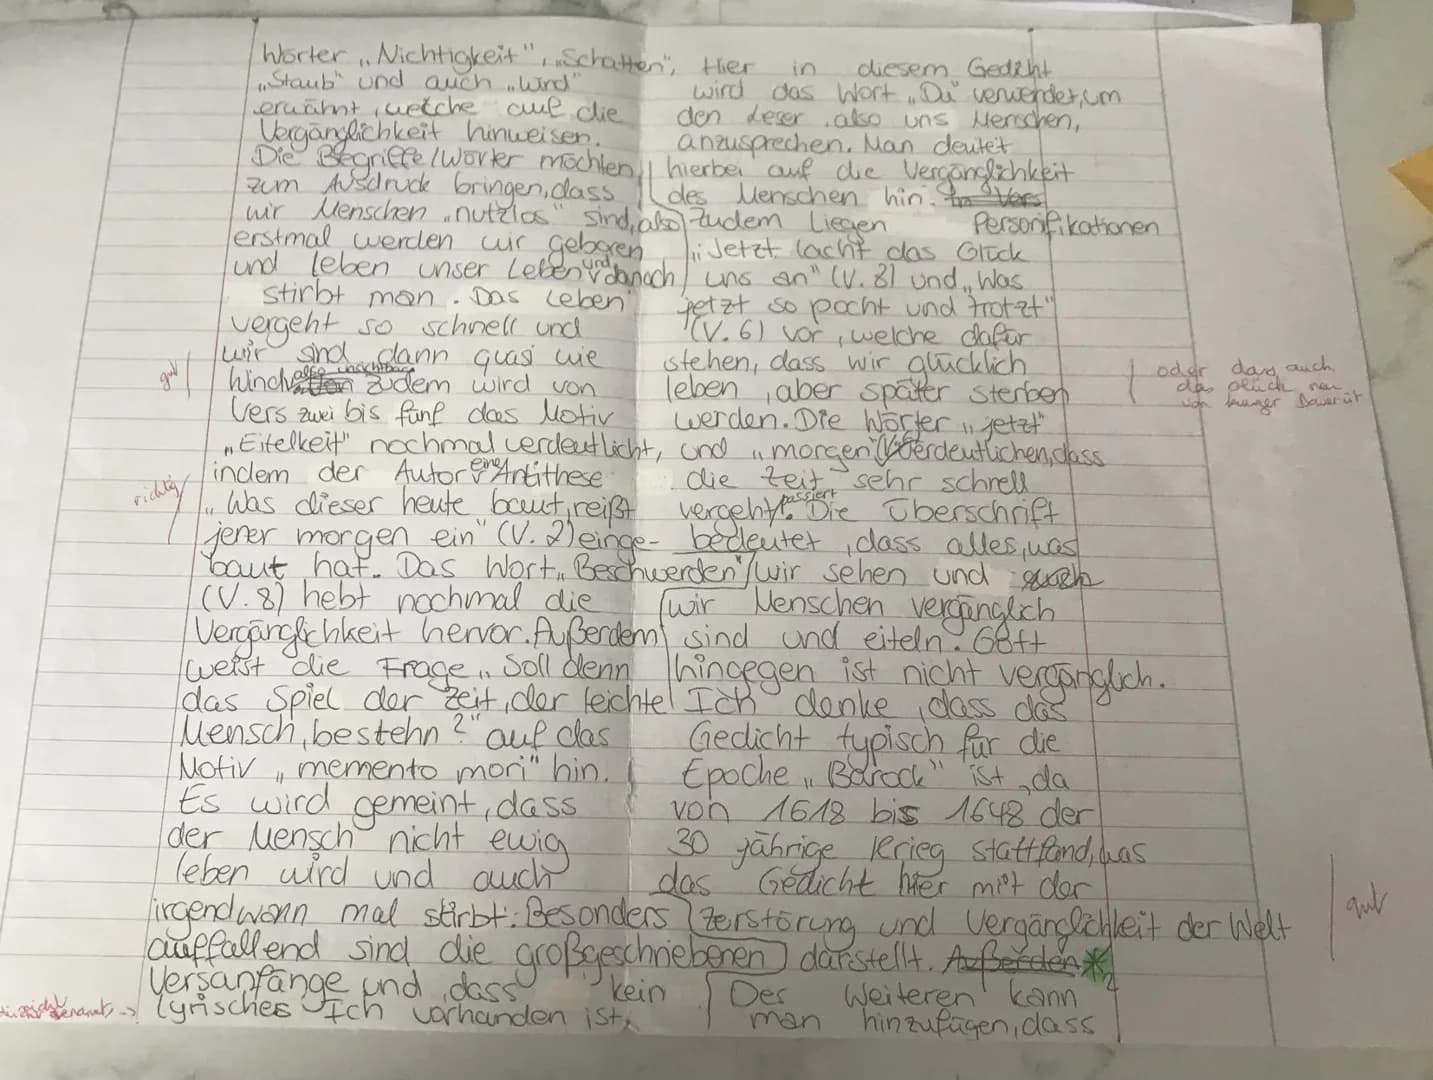 Wörter „Nichtigkeit", „Schatten",
„Staub" und auch „Wind"
erwämt, welche auf die
Vergänglichkeit hinweisen.
Die Begriffe/Wörter möchten
zum Ausdruck bringen, dass
wir Menschen „nutzlos" sind, also
erstmal werden wir geboren
und leben unser Leben und danach
stirbt man. Das Leben
vergeht so schnell und
wir sind dann quasi wie
Wind, also unsichtbar. Zudem wird von
Vers zwei bis fünf das Motiv
„Eitelkeit" nochmal verdeutlicht,
indem der Autor eine Antithese
„Was dieser heute baut, reißt
jener morgen ein" (V. 2) einge-
baut hat. Das Wort „Beschwerden"
(V. 8) hebt nochmal die
Vergänglichkeit hervor. Außerdem
weist die Frage „Soll denn
das Spiel der Zeit, der leichte
Mensch, bestehn?" auf das
Motiv „memento mori" hin.
Es wird gemeint, dass
der Mensch nicht ewig
leben wird und auch
irgendwann mal stirbt. Besonders
auffallend sind die großgeschriebenen
Versanfänge und, dass kein
lyrisches Ich vorhanden ist.
Hier in diesem Gedicht
wird das Wort „Du" verwendet, um
den Leser, also uns Menschen,
anzusprechen. Man deutet
hierbei auf die Vergänglichkeit
des Menschen hin. In Vers
Zudem liegen Personifikationen
„Jetzt lacht das Glück
uns an" (V. 8) und „Was
jetzt so pocht und trotzt"
(V. 6) vor, welche dafür
stehen, dass wir glücklich
leben, aber später sterben
werden. Die Wörter „jetzt"
und „morgen" verdeutlichen, dass
die Zeit sehr schnell
vergeht/passiert. Die Überschrift
bedeutet, dass alles, was
wir sehen und auch
wir Menschen vergänglich
sind und eiteln. Gott
hingegen ist nicht vergänglich.
Ich denke, dass das
Gedicht typisch für die
Epoche „Barock" ist, da
von 1618 bis 1648 der
30 jährige Krieg stattfand, was
das Gedicht hier mit der
Zerstörung und Vergänglichkeit der Welt
darstellt. Außerdem *2
Des Weiteren kann
man hinzufügen, dass
gut
richtig
oder dass auch
das Glück nur
von kurzer Dauer ist
gut